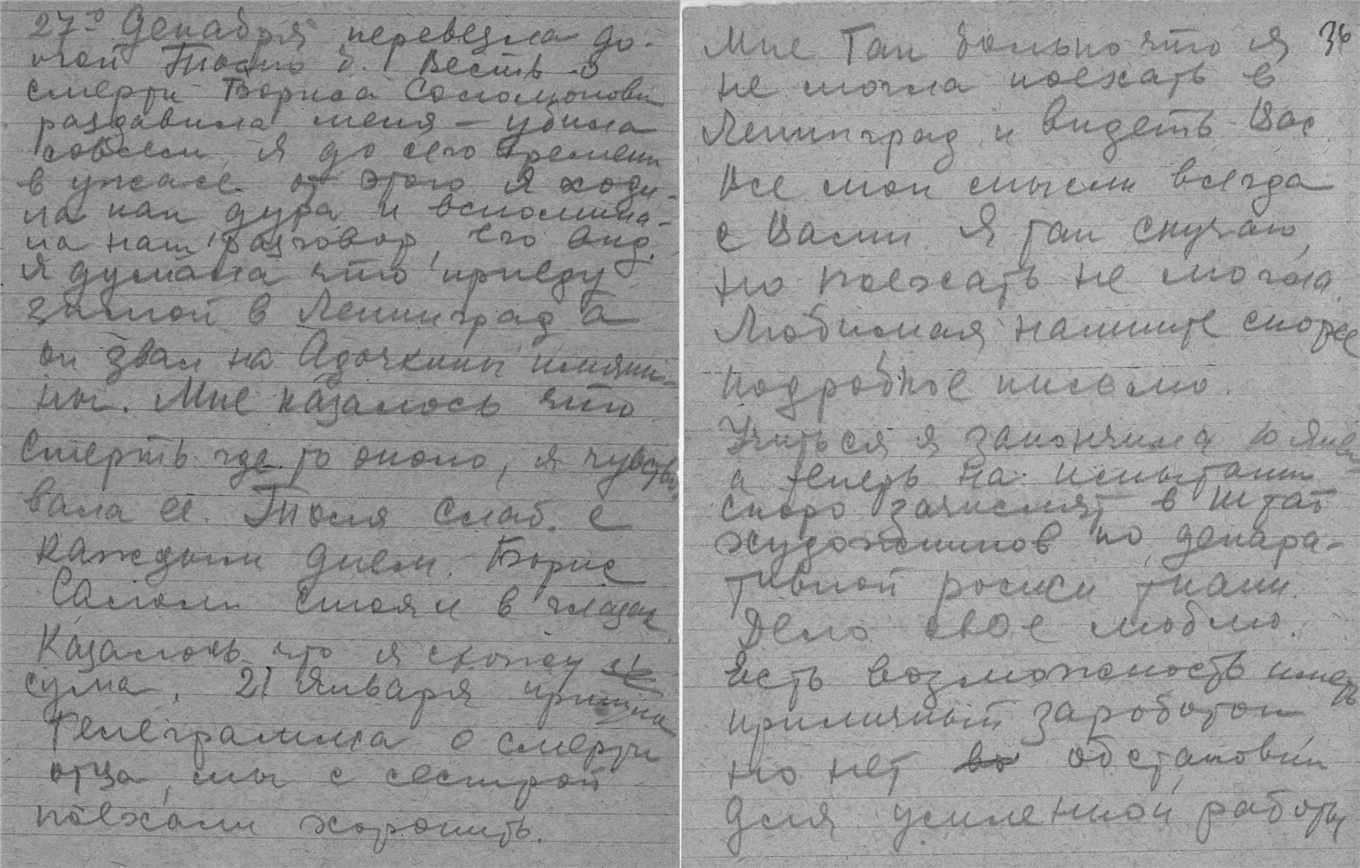 27го Декабря перевезла до-
мой Толю. Весть о
смерти Бориса Соломонови
раздавила меня — убила
совсем. Я до сего времени
в ужасе от этого я ходи-
ла как дура и вспомина-
ла наш разговор, его вид.
Я думала что приеду
зимой в Ленинград а
он звал на Адочкины имяни-
ны. Мне казалось что
смерть где то около, я чувство
вала ее. Толя слаб. с
каждым днем. Борис
Салом стоял в глазах
Казалось что я схожу
сума. 21 Января пришла
Телеграмма о смерти
отца, мы с сестрой
поехали хоронить.
Мне так больно что я 36
не могла поехать в
Ленинград и видеть Вас
Все мои мысли всегда
с Вами Я так скучаю,
но поехать не могла.
Любимая напишите скорее
подробное письмо.
Учиться я закончила 10 Янв
а теперь на испытании
скоро зачислят в штат
художников по декора-
тивной росписи ткани.
Дело свое люблю.
Есть возможность иметь
приличный зароботок
но нет обстановки
для усиленной работы